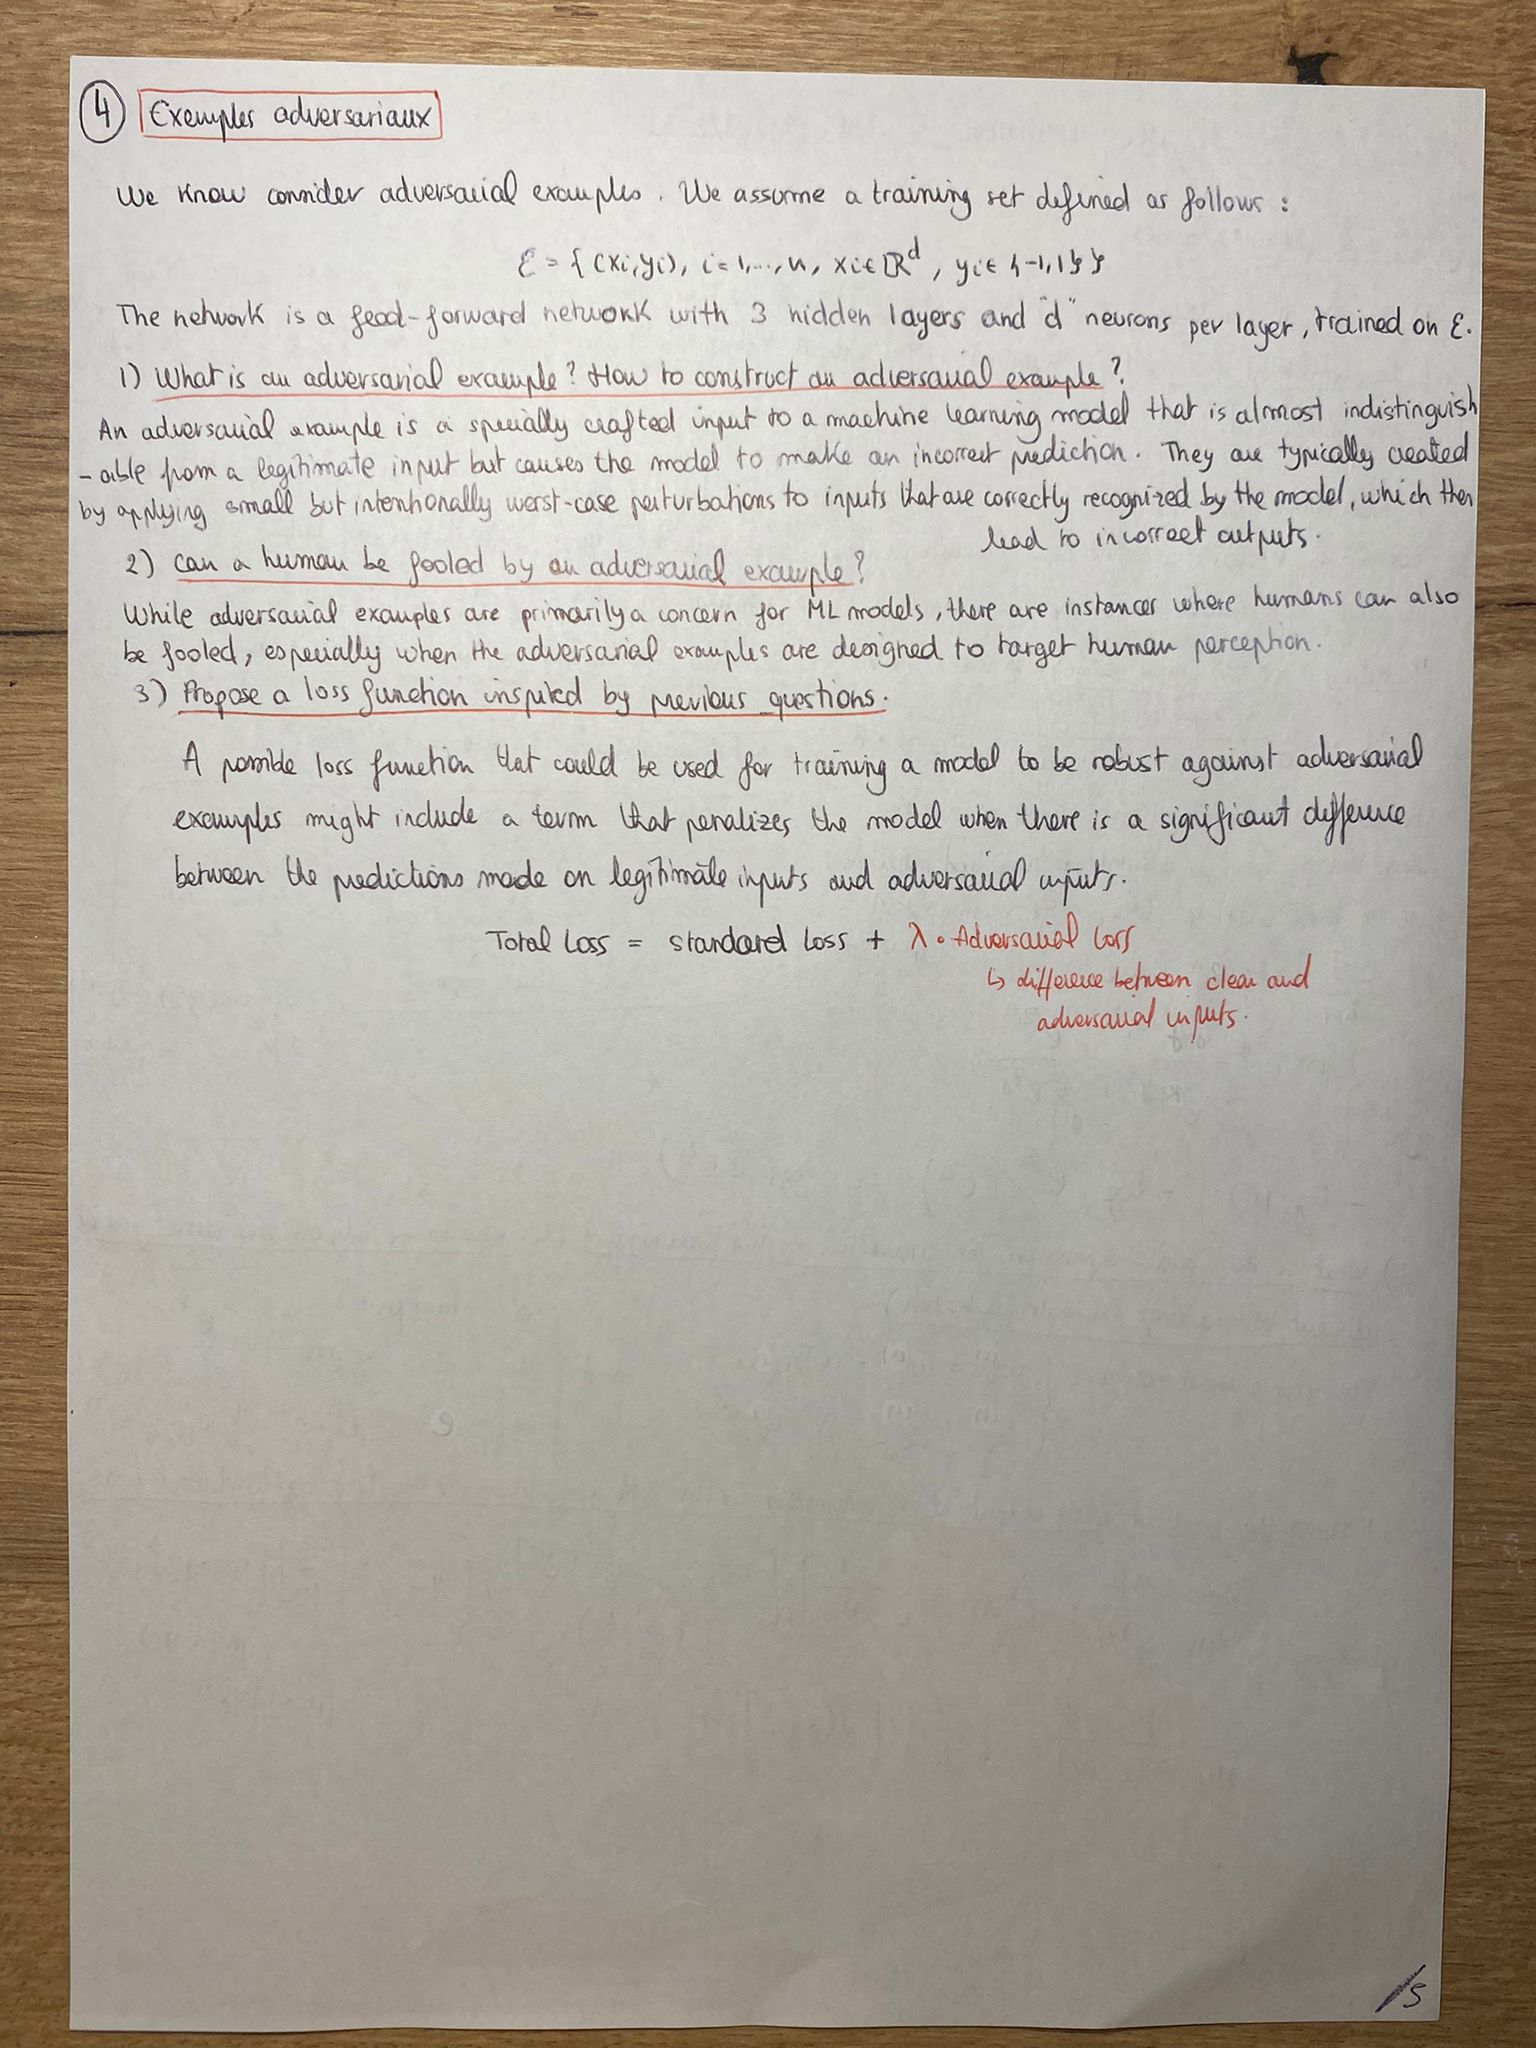 4 Exemples adversariaux
We know consider adversarial examples. We assume a training set defined as follows :
ℰ = { (xi, yi), i = 1,..., n, xi ∈ ℝ^d, yi ∈ {-1,1} }
The network is a feed-forward network with 3 hidden layers and "d" neurons per layer, trained on ℰ.
1) What is an adversarial example? How to construct an adversarial example?
An adversarial example is a specially crafted input to a machine learning model that is almost indistinguish
-able from a legitimate input but causes the model to make an incorrect prediction. They are typically created
by applying small but intentionally worst-case perturbations to inputs that are correctly recognized by the model, which then
lead to incorrect outputs.
2) Can a human be fooled by an adversarial example?
While adversarial examples are primarily a concern for ML models, there are instances where humans can also
be fooled, especially when the adversarial examples are designed to target human perception.
3) Propose a loss function inspired by previous questions.
A possible loss function that could be used for training a model to be robust against adversarial
examples might include a term that penalizes the model when there is a significant difference
between the predictions made on legitimate inputs and adversarial inputs.
Total Loss = standard Loss + λ • Adversarial Loss
↳ difference between clean and
adversarial inputs.
/5